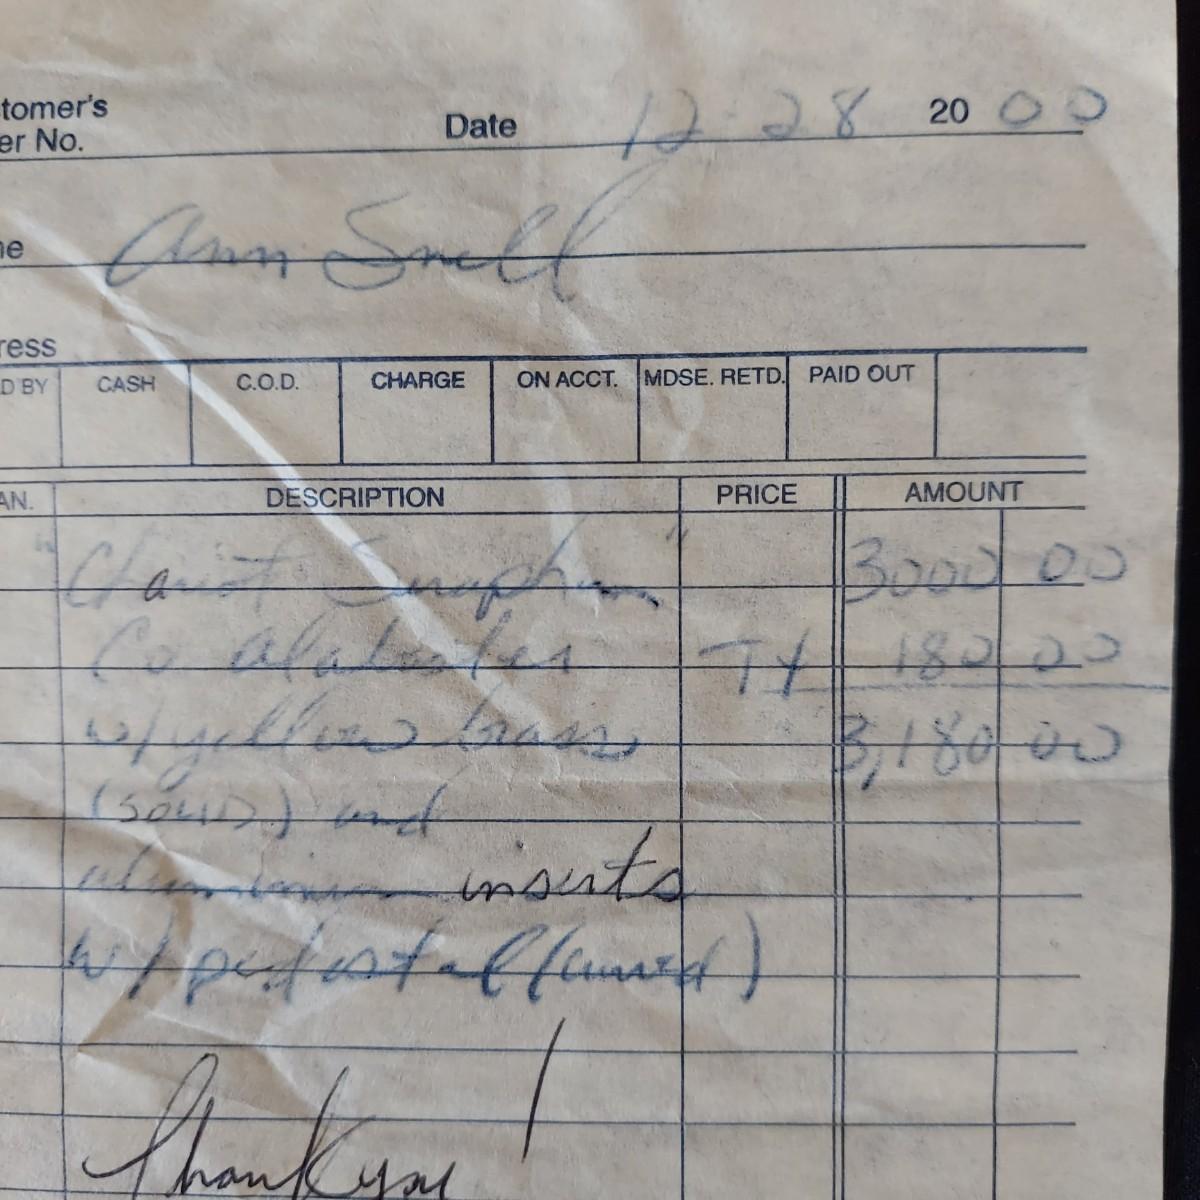 tomer's
er No.
Date 12-28 20 00
me Ann Snell
ress
D BY CASH C.O.D. CHARGE ON ACCT. MDSE. RETD. PAID OUT
AN. DESCRIPTION PRICE AMOUNT
"Chariot Seraphim" 3000 00
Co Alabaster TX 180 00
w/yellow brass 3,180 00
(SOLID) and
aluminum inserts
w/pedestal (curved)
Thank you!